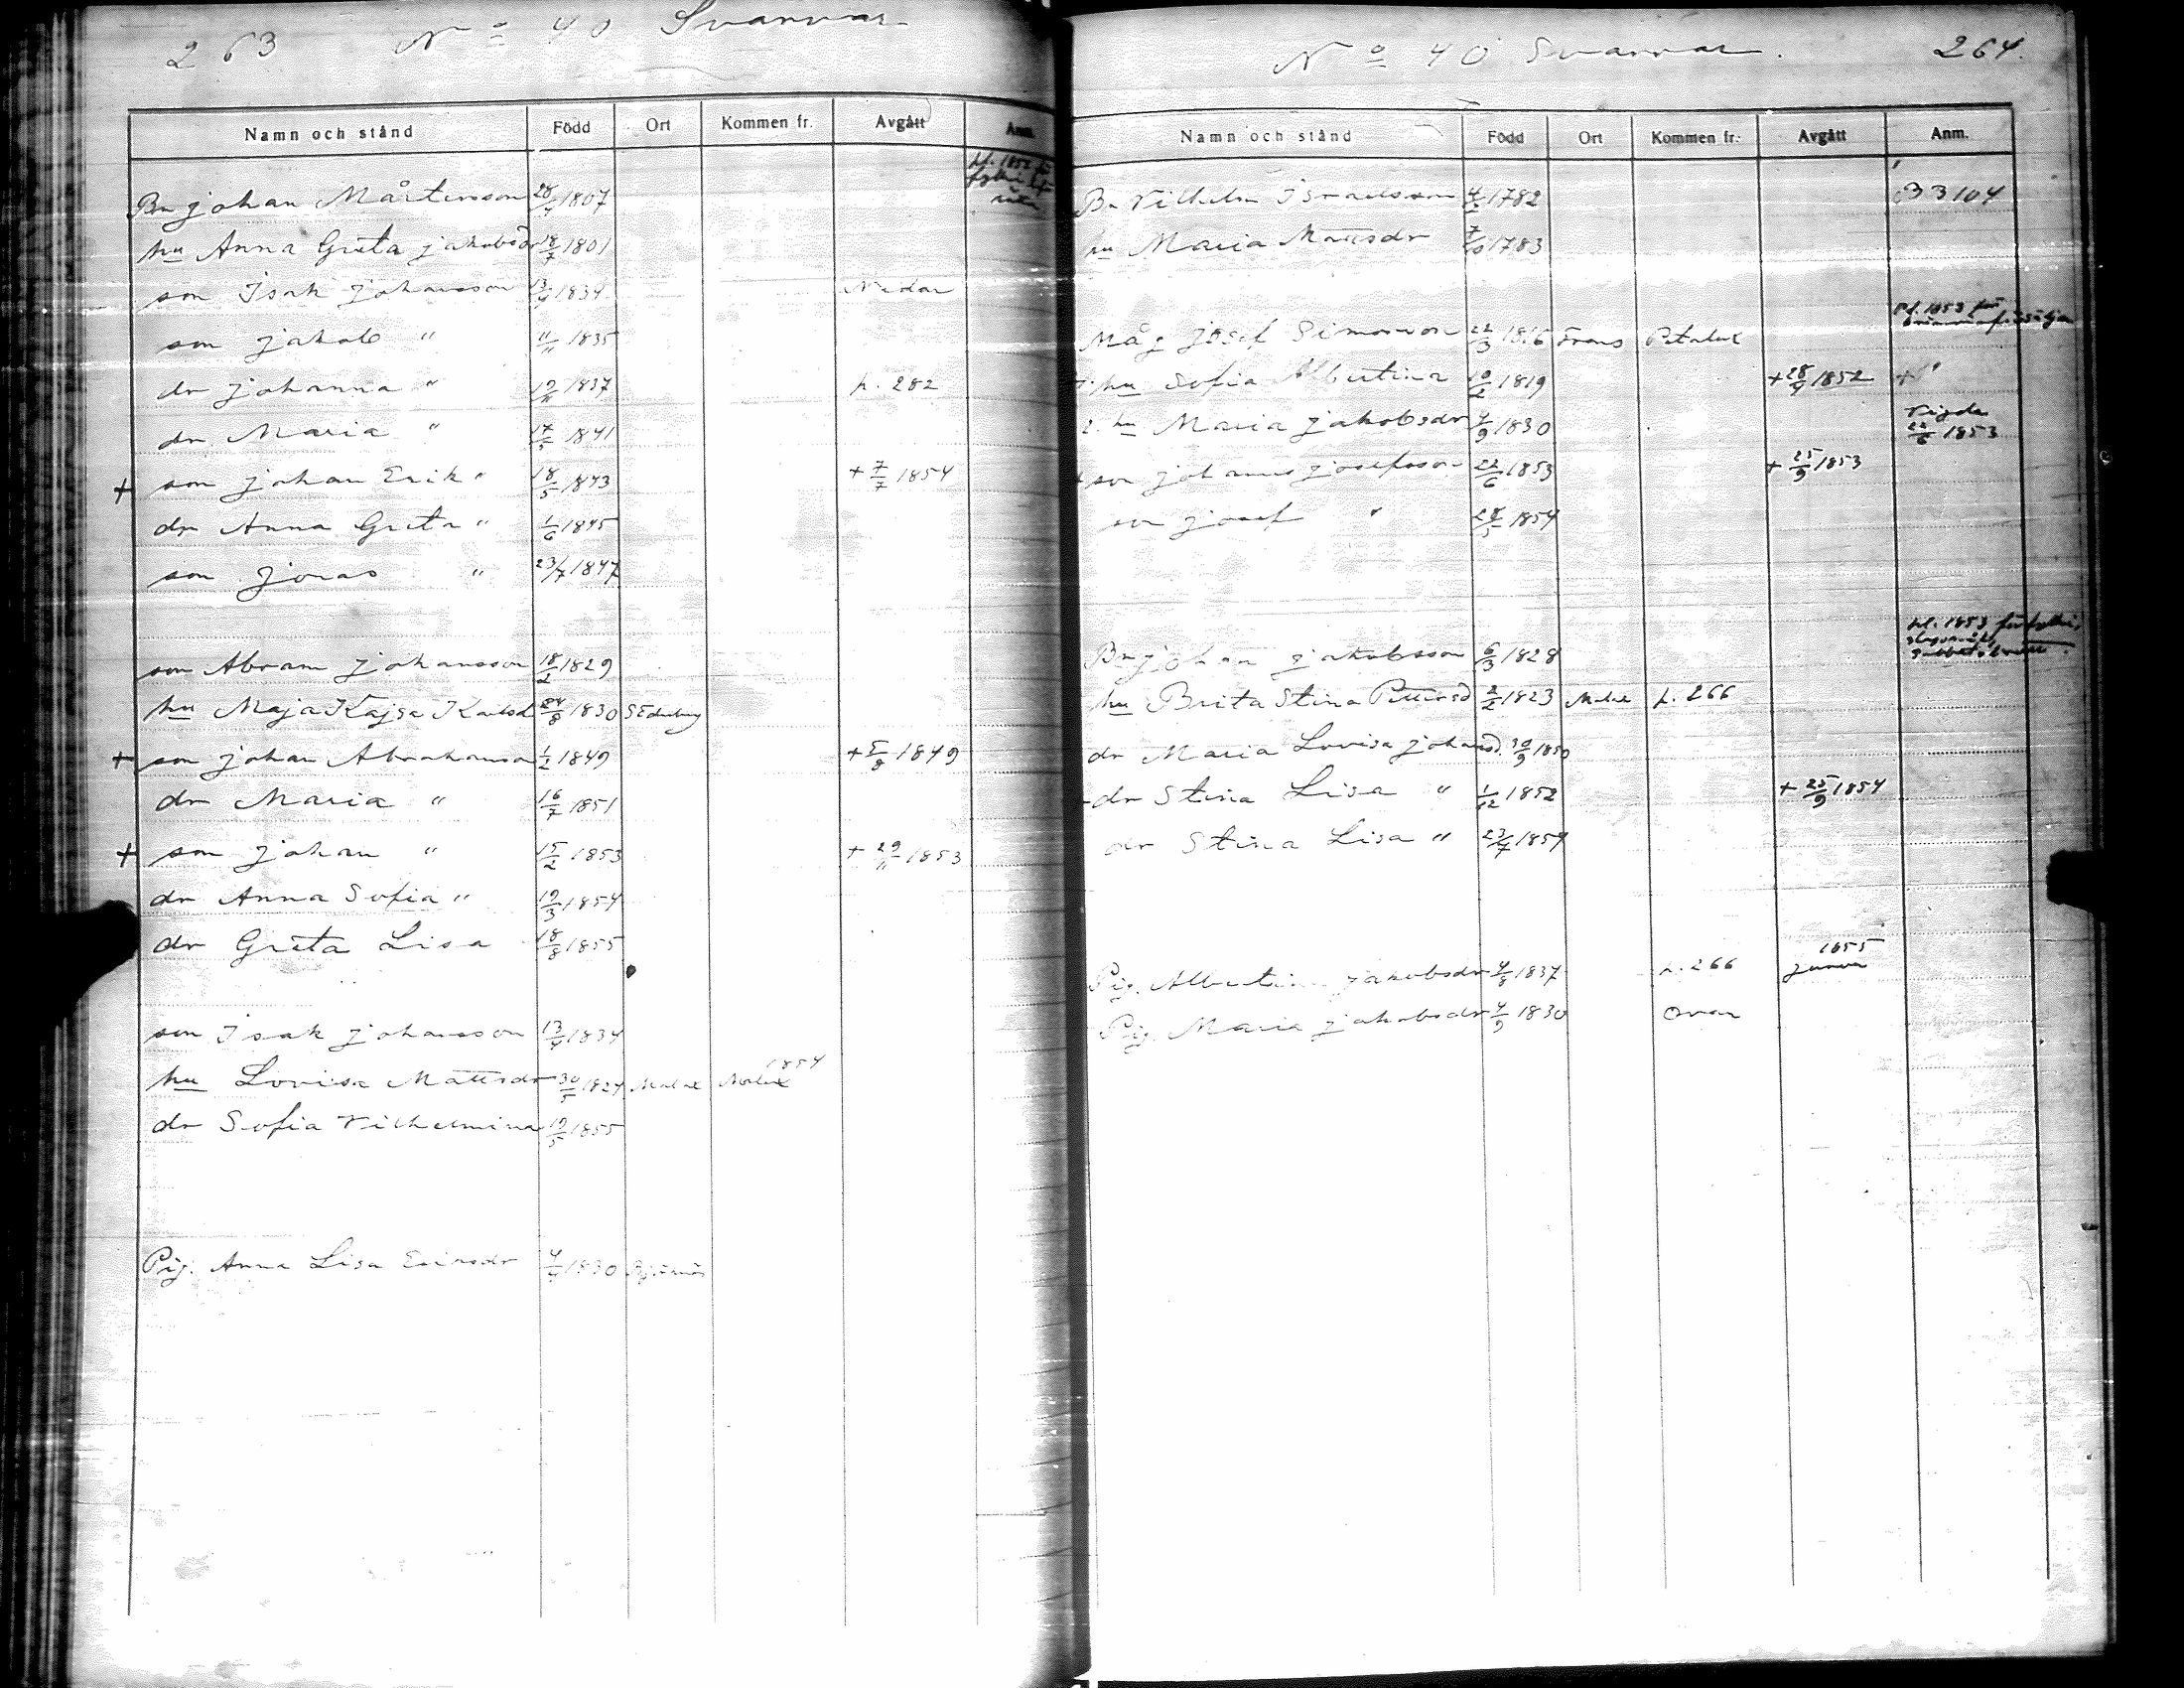 263 No 40 Svarvar
Namn och stånd Född Ort Kommen fr. Avgått Anm.
Bn Johan Mårtensson 28/4 1807
hu Anna Greta Jakobsdr 18/7 1801
son Isak Johansson 13/4 1834 Nedan
son Jakob " 11/11 1835
dr Johanna " 19/11 1837 p. 282
dr Maria " 17/5 1841
+ son Johan Erik " 18/5 1843 + 7/7 1854
dr Anna Greta " 1/6 1845
son Jonas " 23/7 1847
son Abram Johansson 18/2 1829
hu Maja Kajsa Karlsd 24/8 1830
+ son Johan Abrahamson 1/2 1849 + 5/8 1849
dr Maria " 16/7 1851
+ son Johan " 15/2 1853 + 29/11 1853
dr Anna Sofia " 19/3 1854
dr Greta Lisa 18/8 1855
son Isak Johansson 13/4 1834
1854
hu Lovisa Mattsdr 30/5 1824 Malax Malax
dr Sofia Vilhelmina 19/5 1855
Pig. Anna Lisa Eriksdr 4/4 1830
No 40 Svarvar. 264.
Namn och stånd Född Ort Kommen fr. Avgått Anm.
Bn Vilhelm Israelsson 4/2 1782 B 3 104
hu Maria Mattsdr 7/10 1783
pl. 1853 för
Måg Josef Simonson 22/3 1816 Petalax
1. hu Sofia Albertina 10/2 1819 + 28/9 1852
Vigda
2. hu Maria Jakobsdr 4/9 1830 22/6 1853
+ son Johannes Josefsson 22/6 1853 + 25/9 1853
son Josef " 28/5 1854
pl. 1853
Bn Johan Jakobsson 6/3 1828
hu Brita Stina Pettersd 2/2 1823 Malax p. 266
dr Maria Lovisa Johansd. 30/9 1850
dr Stina Lisa " 1/12 1852 + 25/9 1854
dr Stina Lisa " 23/7 1859
1855
Pig. Albertina Jakobsdr 4/8 1837 p. 266
Pig. Maria Jakobsdr 4/9 1830 ovan